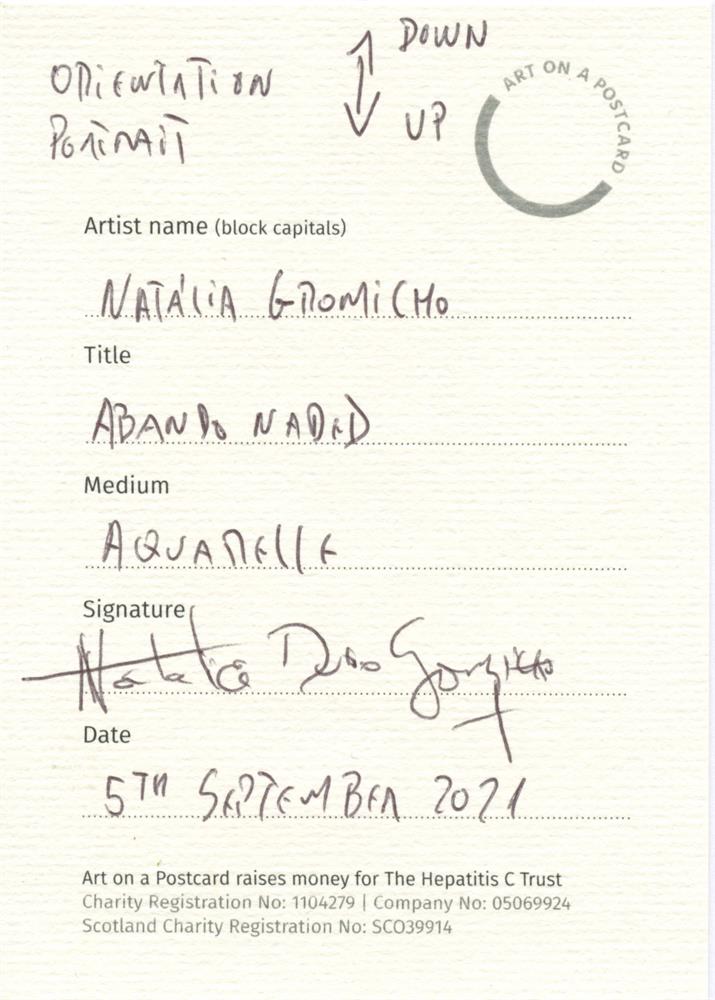 DOWN
ORIENTATION
UP
PORTRAIT
ART ON A POSTCARD
Artist name (block capitals)
NATÁLIA GROMICHO
Title
ABANDONADED
Medium
AQUARELLE
Signature
Natália
Date
5TH SEPTEMBER 2021
Art on a Postcard raises money for The Hepatitis C Trust
Charity Registration No: 1104279 | Company No: 05069924
Scotland Charity Registration No: SCO39914